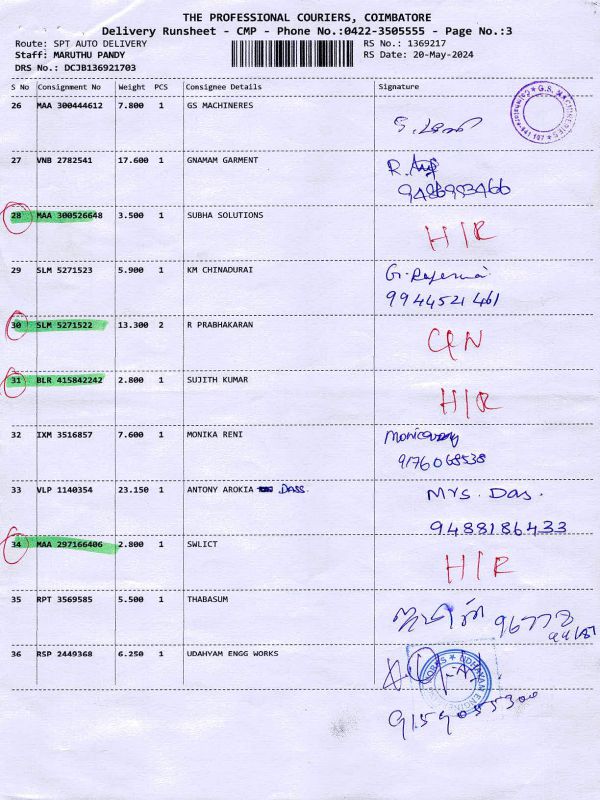 THE PROFESSIONAL COURIERS, COIMBATORE
Delivery Runsheet - CMP - Phone No.:0422-3505555 - Page No.:3
Route: SPT AUTO DELIVERY RS No.: 1369217
Staff: MARUTHU PANDY RS Date: 20-May-2024
DRS No.: DCJB136921703
S No Consignment No Weight PCS Consignee Details Signature
26 MAA 300444612 7.800 1 GS MACHINERES
27 VNB 2782541 17.600 1 GNAMAM GARMENT R.
9486993466
28 MAA 300526648 3.500 1 SUBHA SOLUTIONS H/R
29 SLM 5271523 5.900 1 KM CHINADURAI G.
9944521461
30 SLM 5271522 13.300 2 R PRABHAKARAN
31 BLR 415842242 2.800 1 SUJITH KUMAR H/R
32 IXM 3516857 7.600 1 MONIKA RENI
9176068538
33 VLP 1140354 23.150 1 ANTONY AROKIA DASS. Mrs. Das.
9488186433
34 MAA 297166406 2.800 1 SWLICT H/R
35 RPT 3569585 5.500 1 THABASUM 96778
36 RSP 2449368 6.250 1 UDAHYAM ENGG WORKS
9159055300